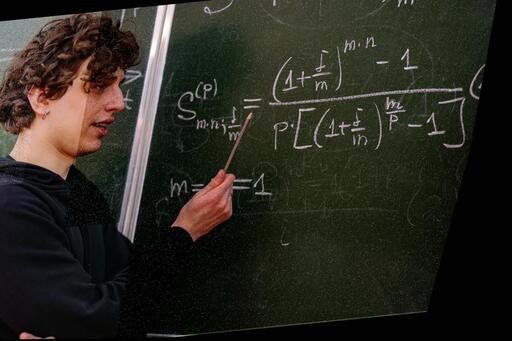 S^{(p)}_{m·n; j/m} = \frac{(1+\frac{j}{m})^{m·n} - 1}{p·[(1+\frac{j}{m})^{\frac{m}{p}} - 1]}
m= =1